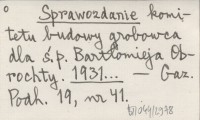 Sprawozdanie komi-
tetu budowy grobowca
dla ś.p. Bartłomieja Ob-
rochty. 1931... — Gaz.
Podh. 19, nr 41.